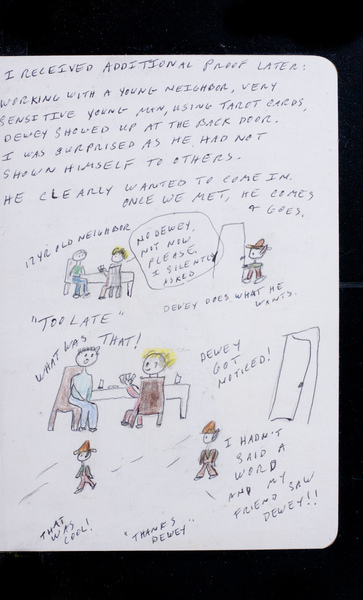 I RECEIVED ADDITIONAL PROOF LATER:
WORKING WITH A YOUNG NEIGHBOR, VERY
SENSITIVE YOUNG MAN, USING TAROT CARDS,
DEWEY SHOWED UP AT THE BACK DOOR.
I WAS SURPRISED AS HE HAD NOT
SHOWN HIMSELF TO OTHERS.
HE CLEARLY WANTED TO COME IN.
ONCE WE MET, HE COMES
& GOES.
17 YR OLD NEIGHBOR
NO DEWEY,
NOT NOW
PLEASE
I SILENTLY
ASKED
DEWEY DOES WHAT HE
WANTS.
"TOO LATE"
WHAT WAS THAT!
DEWEY
GOT
NOTICED!
I HADN'T
SAID A
WORD
AND MY
FRIEND SAW
DEWEY!!
THAT
WAS
COOL!
"THANKS
DEWEY"